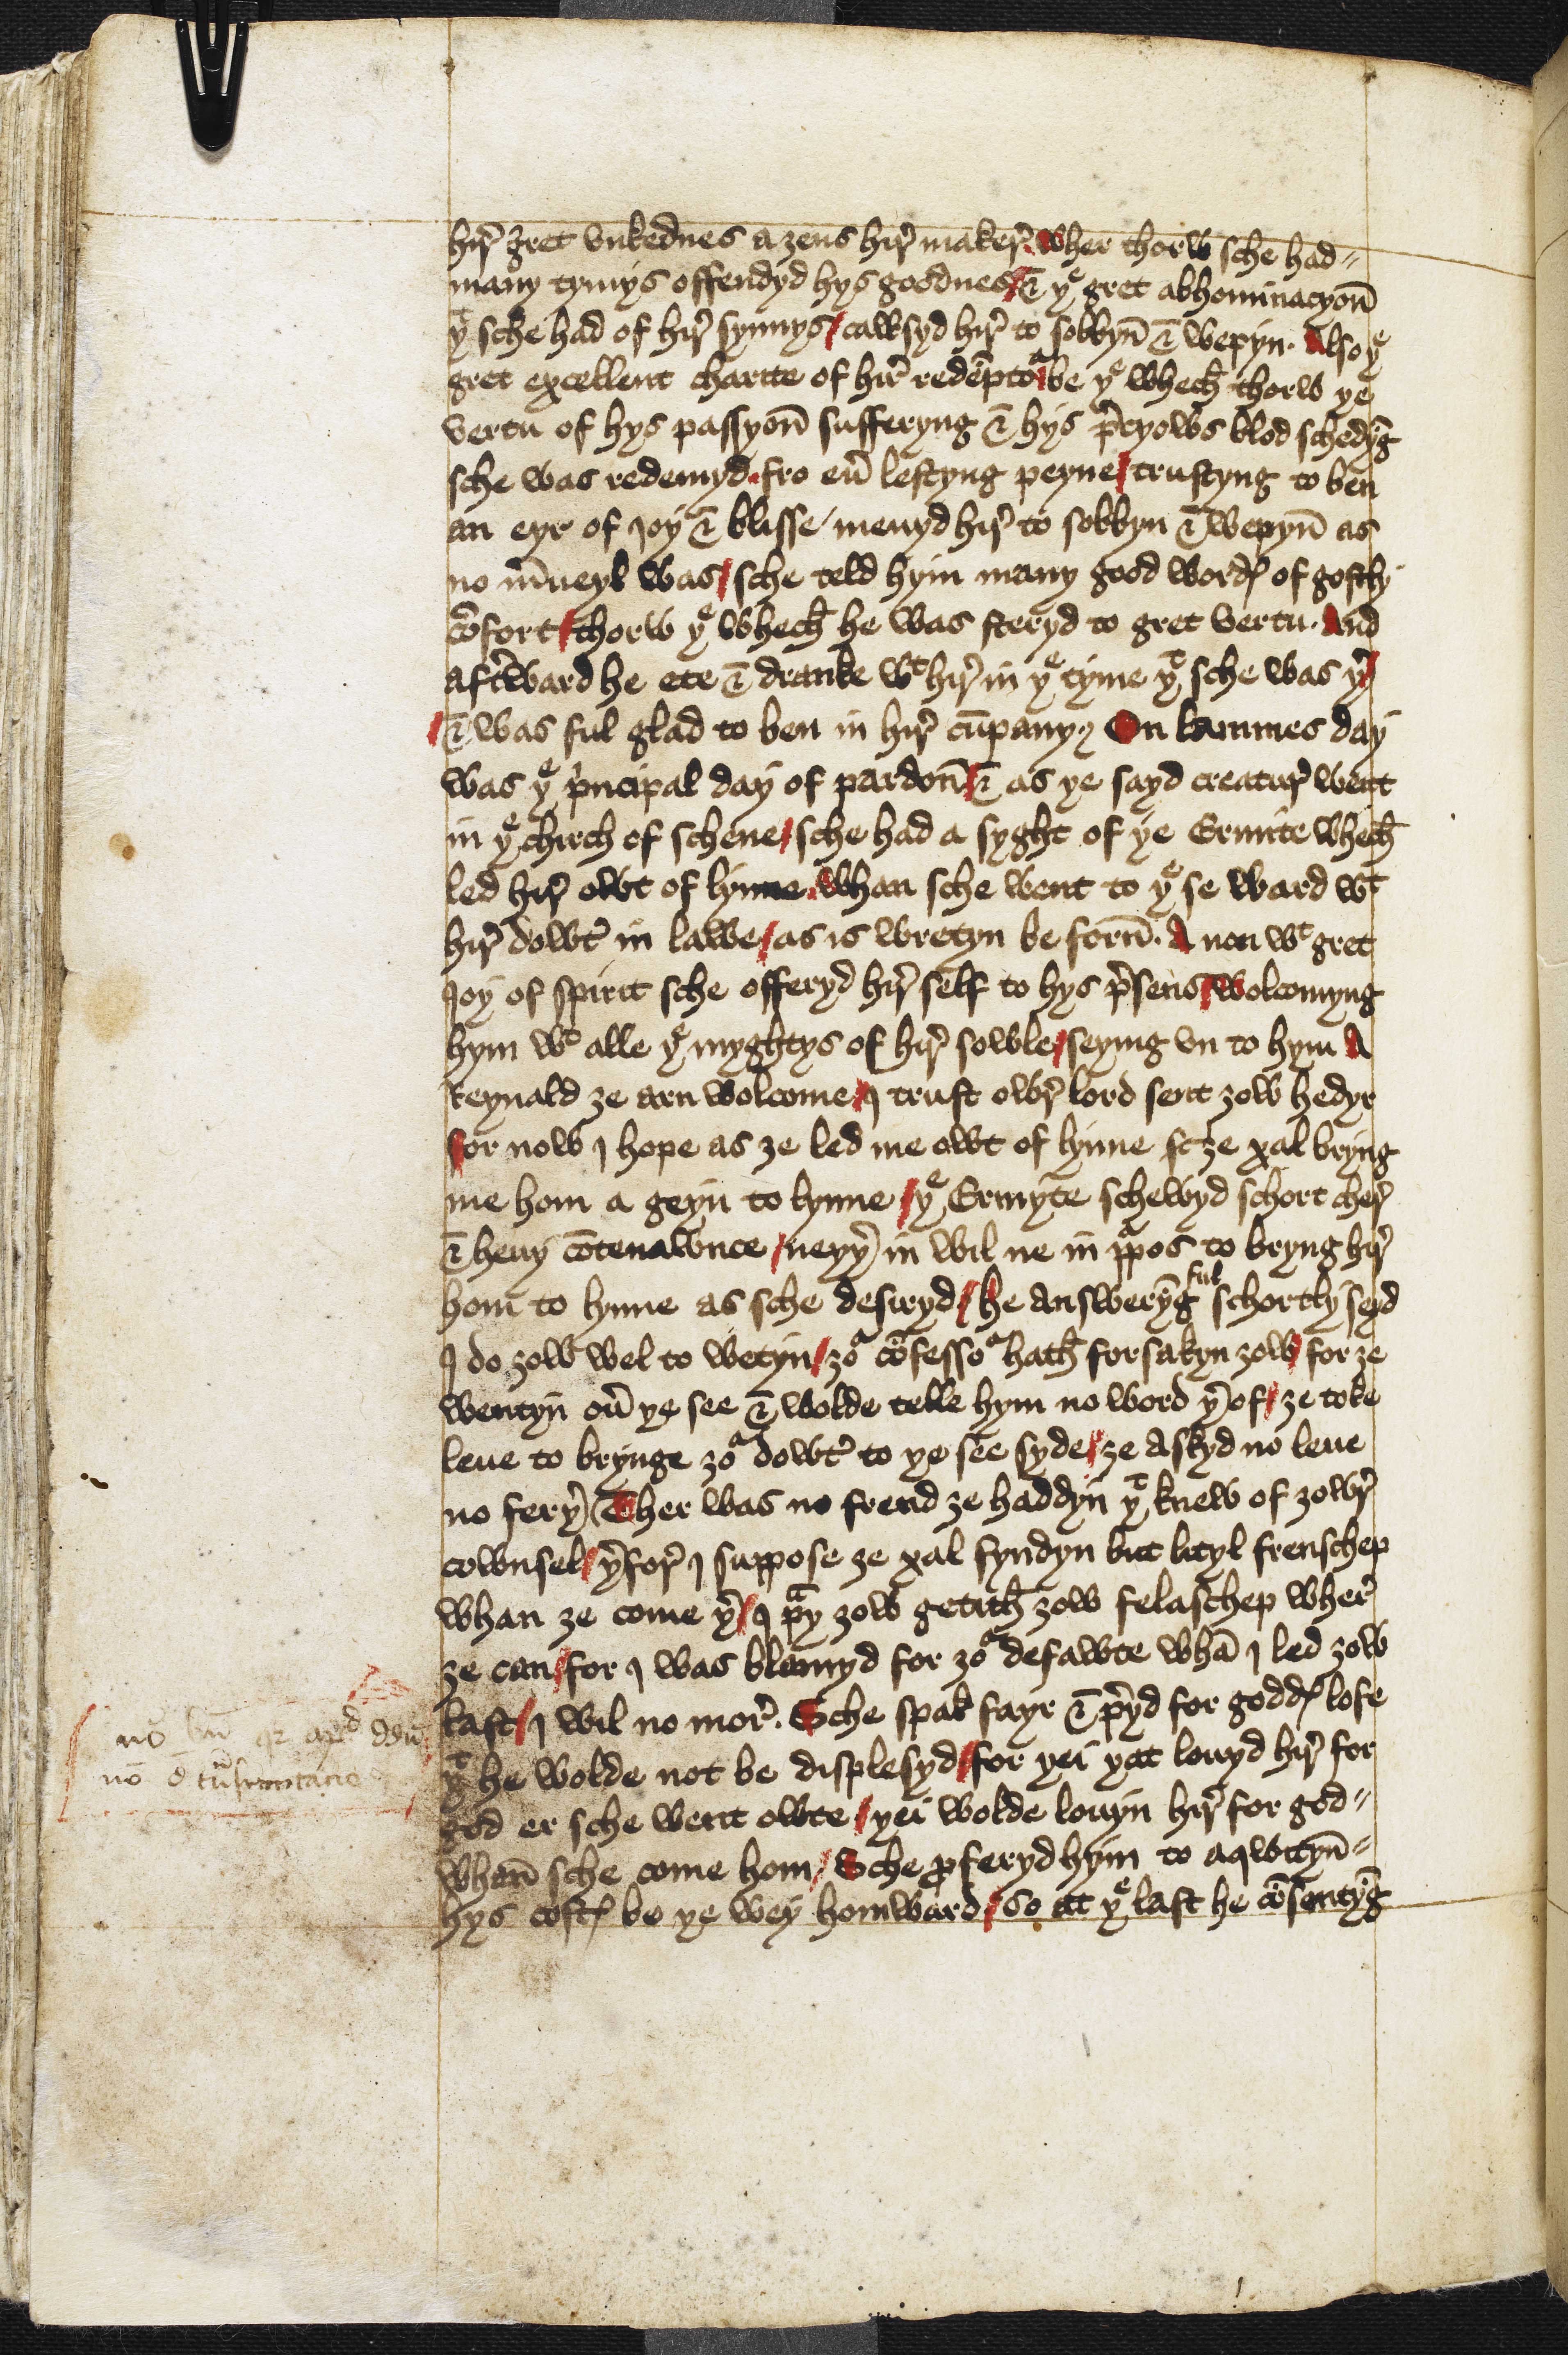 hir̕ gret vnkednes a ȝens hir̕ maker̕. wher thorw sche had
many tymys offendyd hys goodnes / & yͤ gret abhominacyon̄
yͭ sche had of hir̕ synnys / cawsyd hir̕ to sobbyn̄ & wepyn. Also yͤ
gret excellent charite of hir̕ redēptoͬ / be yͤ whech̄ thorw ye
vertu of hys passyon̄ sufferyng & hys p̕cyows blod schedyn̄g
sche was redemyd. fro eu̕ lestyng peyne / trustyng to ben
an eyr of joy & blisse / meuyd hir̕ to sobbyn & wepyn̄ as
no m̄ueyl was / sche teld hym many good wordꝭ of gostly
cōfort / thorw yͤ whech̄ he was steryd to gret vertu. And
aft̕ward he ete & dranke wͭ hir̕ in yͤ tyme yͭ sche was y̕ /
/ & was ful glad to ben in hir̕ cūpany. On lammes day
was yͤ p̕ncipal day of pardon̄ / & as ye sayd creatur̕ went
in yͤ chirch of schene / sche had a syght of ye Ermite whech̄
led hir̕ owt of lynne. whan sche went to yͤ se ward wͭ
hir̕ dowt̕ in lawe / as is wretyn be forn̄. A non wͭ gret
joy of spirit sche offeryd hir̕ self to hys p̕sens / wolcomyng
hym wͭ alle yͤ myghtys of hir̕ sowle / seying vn to hym A
Reynald ȝe arn wolcome / j trust owr̕ lord sent ȝow hedyr
for now j hope as ȝe led me owt of lynne ȝe xal bryng
me hom a geyn to lynne / yͤ Ermyte schewyd schort cher̕
& heuy cōtenawnce / neyy̕ in wil ne in ꝑpos to bryng hir̕
hom to lynne as sche desiryd / he Answeryn̄g ful schortly seyd
j do ȝow wel to wetyn / ȝoͬ cōfessoͬ hath̄ forsakyn ȝow / for ȝe
wentyn ou̕ ye see & wolde telle hym no word y̕ of / ȝe toke
leue to brynge ȝoͬ dowt̕ to ye see syde / ȝe Askyd no leue
no fery̕ / Ther was no frend ȝe haddyn yͭ knew of ȝowr̕
cownsel / y̕for̕ j suppose ȝe xal fyndyn but lityl frenschep
whan ȝe come y̕ / j p̕y ȝow getith̄ ȝow felaschep wher̕
ȝe can / for j was blamyd for ȝoͬ defawte whā j led ȝow
last / j wil no mor̕. Sche spak fayr & p̕yd for goddꝭ lofe
yͭ he wolde not be displesyd / for yei yat louyd hir̕ for
god er sche went owte / yei wolde louyn hir̕ for god
whan̄ sche come hom / Sche ꝓferyd hym to aqwityn̄
hys costꝭ be ye wey homward / so at yͤ last he cōsentyn̄g